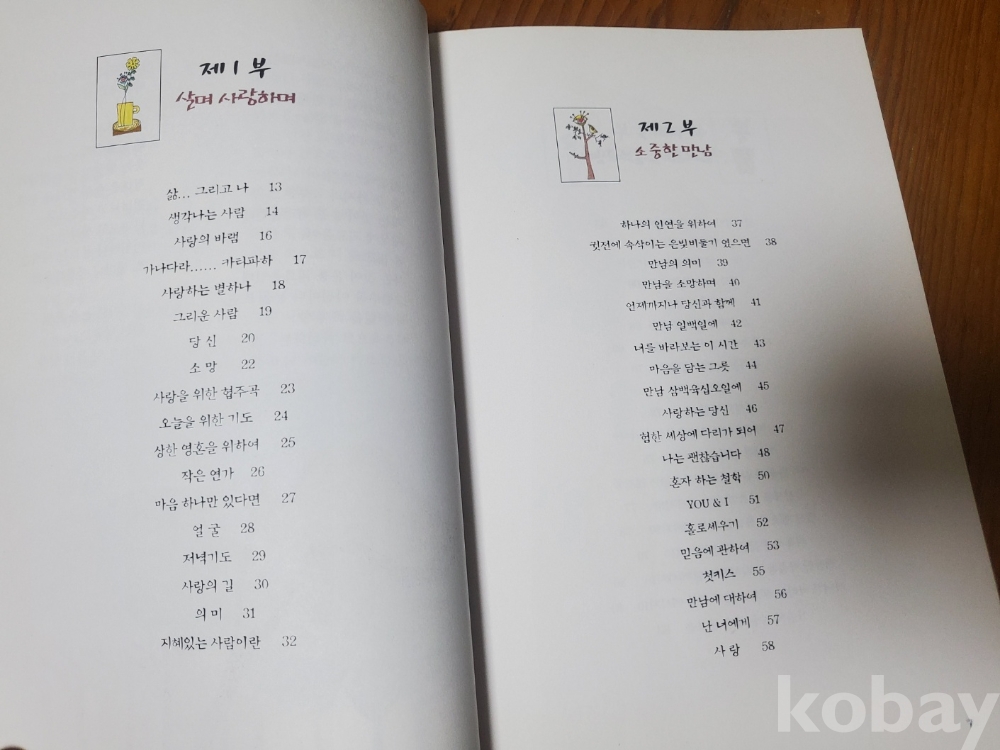 제1부
살며 사랑하며
삶... 그리고 나 13
생각나는 사람 14
사랑의 바램 16
가나다라...... 카타파하 17
사랑하는 별하나 18
그리운 사람 19
당신 20
소망 22
사랑을 위한 협주곡 23
오늘을 위한 기도 24
상한 영혼을 위하여 25
작은 연가 26
마음 하나만 있다면 27
얼굴 28
저녁기도 29
사랑의 길 30
의미 31
지혜있는 사람이란 32
제2부
소중한 만남
하나의 인연을 위하여 37
귓전에 속삭이는 은빛비둘기 였으면 38
만남의 의미 39
만남을 소망하며 40
언제까지나 당신과 함께 41
만남 일백일에 42
너를 바라보는 이 시간 43
마음을 담는 그릇 44
만남 삼백육십오일에 45
사랑하는 당신 46
험한 세상에 다리가 되어 47
나는 괜찮습니다 48
혼자 하는 철학 50
YOU & I 51
홀로세우기 52
믿음에 관하여 53
첫키스 55
만남에 대하여 56
난 너에게 57
사랑 58
kobay